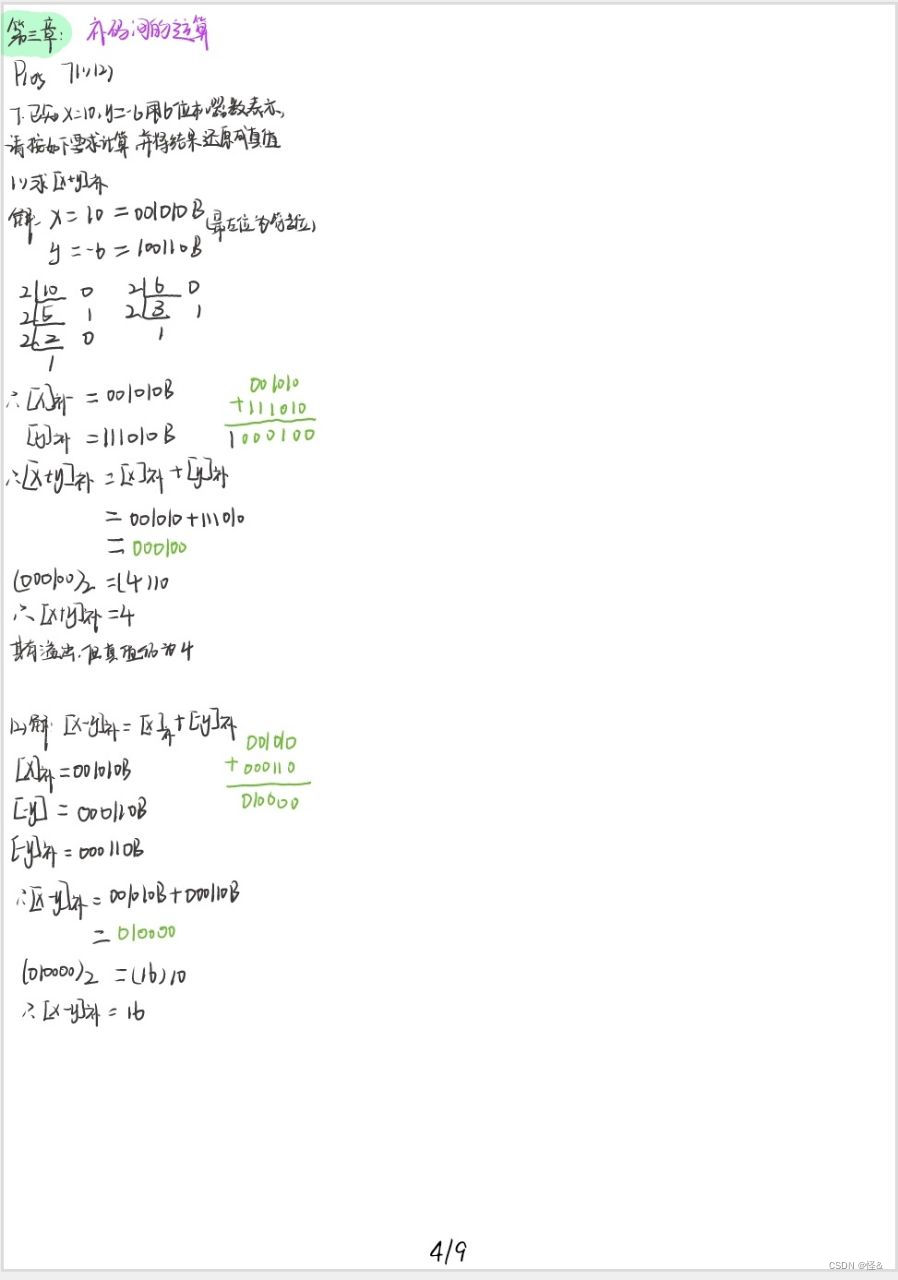 第三章: 补码间的运算
P108 7(1)(2)
7.已知x=10,y=-6用6位机器数表示,
请按如下要求计算,并将结果还原成真值
(1)求[x+y]补
解: x=10=001010B(最左位为符号位)
y=-6=100110B
2 10 0 2 6 0
2 5 1 2 3 1
2 2 0 1
1
∴[x]补 =001010B
[y]补 =111010B
001010
+111010
1000100
∴[x+y]补 =[x]补+[y]补
=001010+111010
=000100
(000100)2 =(4)10
∴[x+y]补=4
其有溢出,但真值仍为4
(2)解: [x-y]补=[x]补+[-y]补
[x]补=001010B
[-y] = 000110B
[-y]补=000110B
001010
+000110
010000
∴[x-y]补=001010B+000110B
=010000
(010000)2 =(16)10
∴[x-y]补=16
4/9
CSDN @怪&